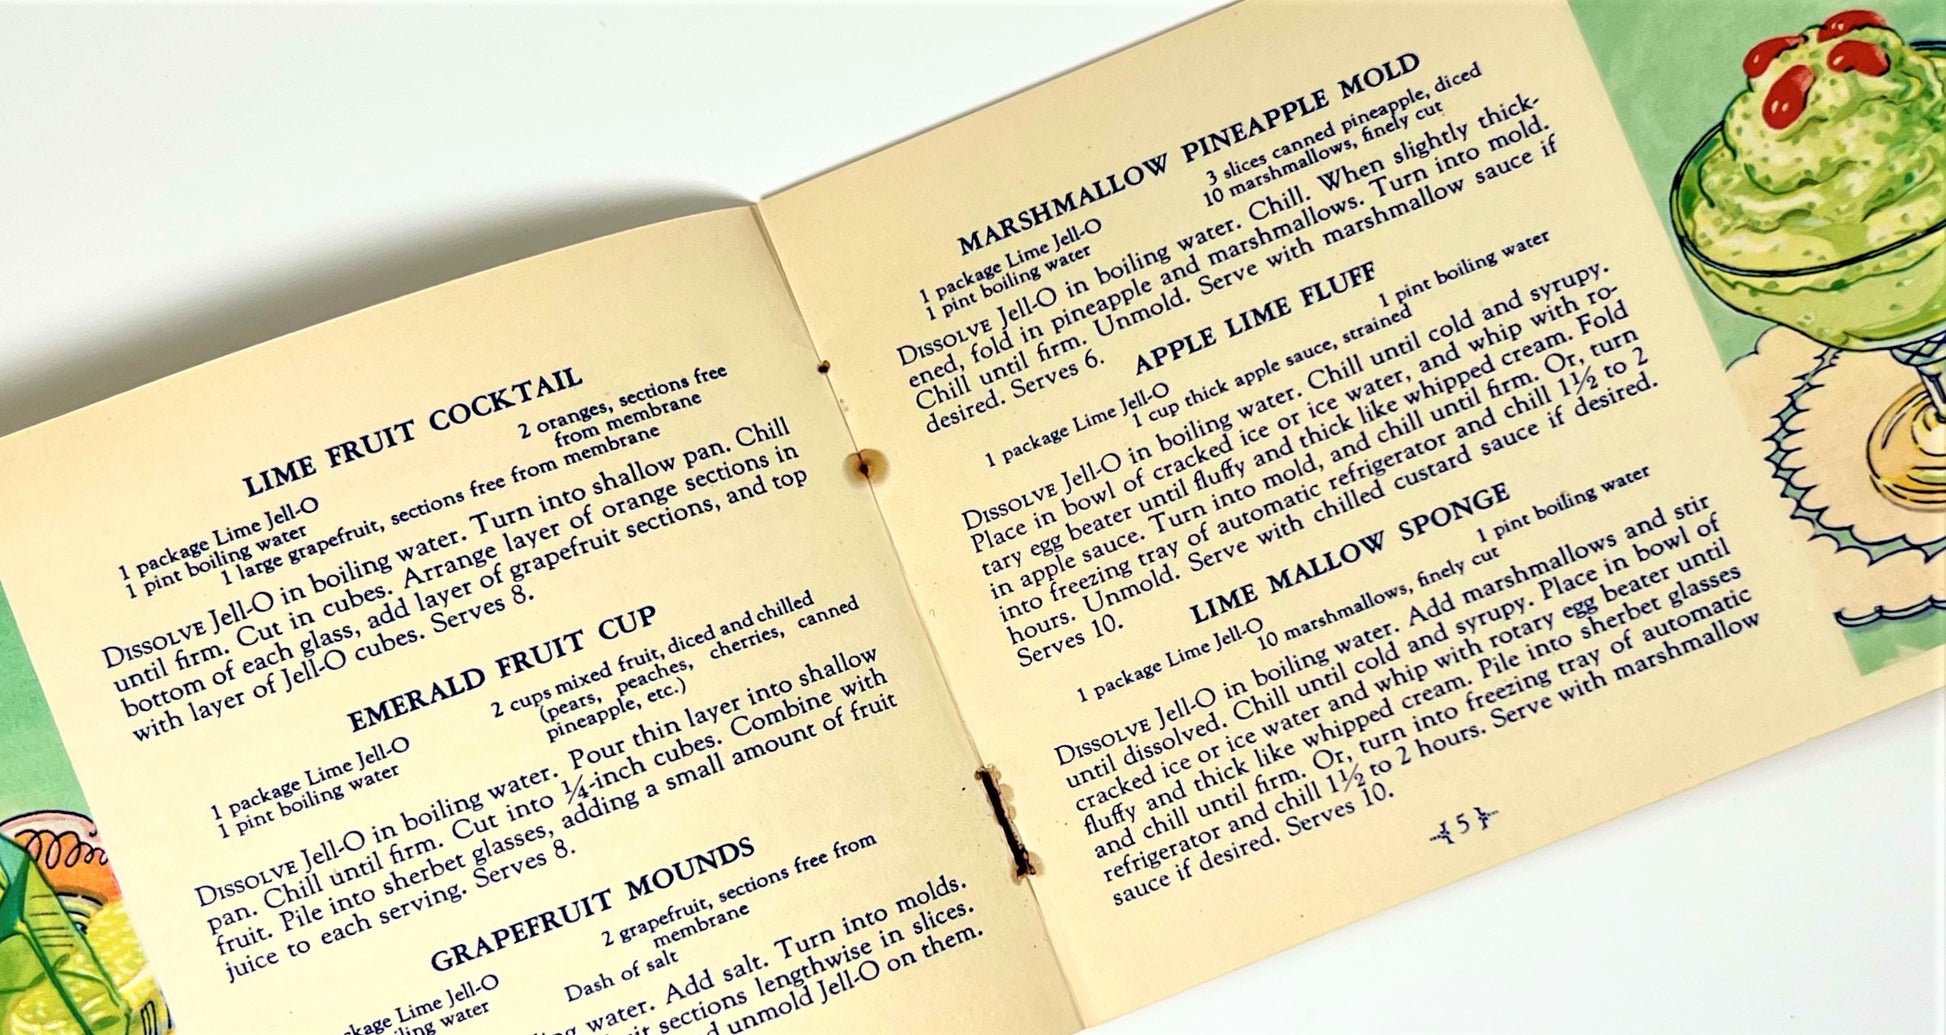 LIME FRUIT COCKTAIL
1 package Lime Jell-O
1 pint boiling water
2 oranges, sections free
from membrane
1 large grapefruit, sections free from membrane
DISSOLVE Jell-O in boiling water. Turn into shallow pan. Chill
until firm. Cut in cubes. Arrange layer of orange sections in
bottom of each glass, add layer of grapefruit sections, and top
with layer of Jell-O cubes. Serves 8.
EMERALD FRUIT CUP
1 package Lime Jell-O
1 pint boiling water
2 cups mixed fruit, diced and chilled
(pears, peaches, cherries, canned
pineapple, etc.)
DISSOLVE Jell-O in boiling water. Pour thin layer into shallow
pan. Chill until firm. Cut into ¼-inch cubes. Combine with
fruit. Pile into sherbet glasses, adding a small amount of fruit
juice to each serving. Serves 8.
GRAPEFRUIT MOUNDS
Lime Jell-O
water
2 grapefruit, sections free from
membrane
Dash of salt
water. Add salt. Turn into molds.
sections lengthwise in slices.
unmold Jell-O on them.
MARSHMALLOW PINEAPPLE MOLD
1 package Lime Jell-O
1 pint boiling water
3 slices canned pineapple, diced
10 marshmallows, finely cut
DISSOLVE Jell-O in boiling water. Chill. When slightly thick-
ened, fold in pineapple and marshmallows. Turn into mold.
Chill until firm. Unmold. Serve with marshmallow sauce if
desired. Serves 6.
APPLE LIME FLUFF
1 package Lime Jell-O
1 pint boiling water
1 cup thick apple sauce, strained
DISSOLVE Jell-O in boiling water. Chill until cold and syrupy.
Place in bowl of cracked ice or ice water, and whip with ro-
tary egg beater until fluffy and thick like whipped cream. Fold
in apple sauce. Turn into mold, and chill until firm. Or, turn
into freezing tray of automatic refrigerator and chill 1½ to 2
hours. Unmold. Serve with chilled custard sauce if desired.
Serves 10.
LIME MALLOW SPONGE
1 package Lime Jell-O
1 pint boiling water
10 marshmallows, finely cut
DISSOLVE Jell-O in boiling water. Add marshmallows and stir
until dissolved. Chill until cold and syrupy. Place in bowl of
cracked ice or ice water and whip with rotary egg beater until
fluffy and thick like whipped cream. Pile into sherbet glasses
and chill until firm. Or, turn into freezing tray of automatic
refrigerator and chill 1½ to 2 hours. Serve with marshmallow
sauce if desired. Serves 10.
5